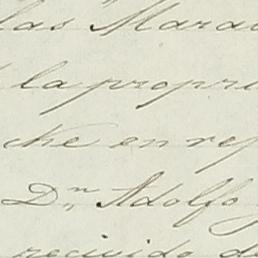 las Mara
la propri
che en rep
Dn. Adolfo
recivido d